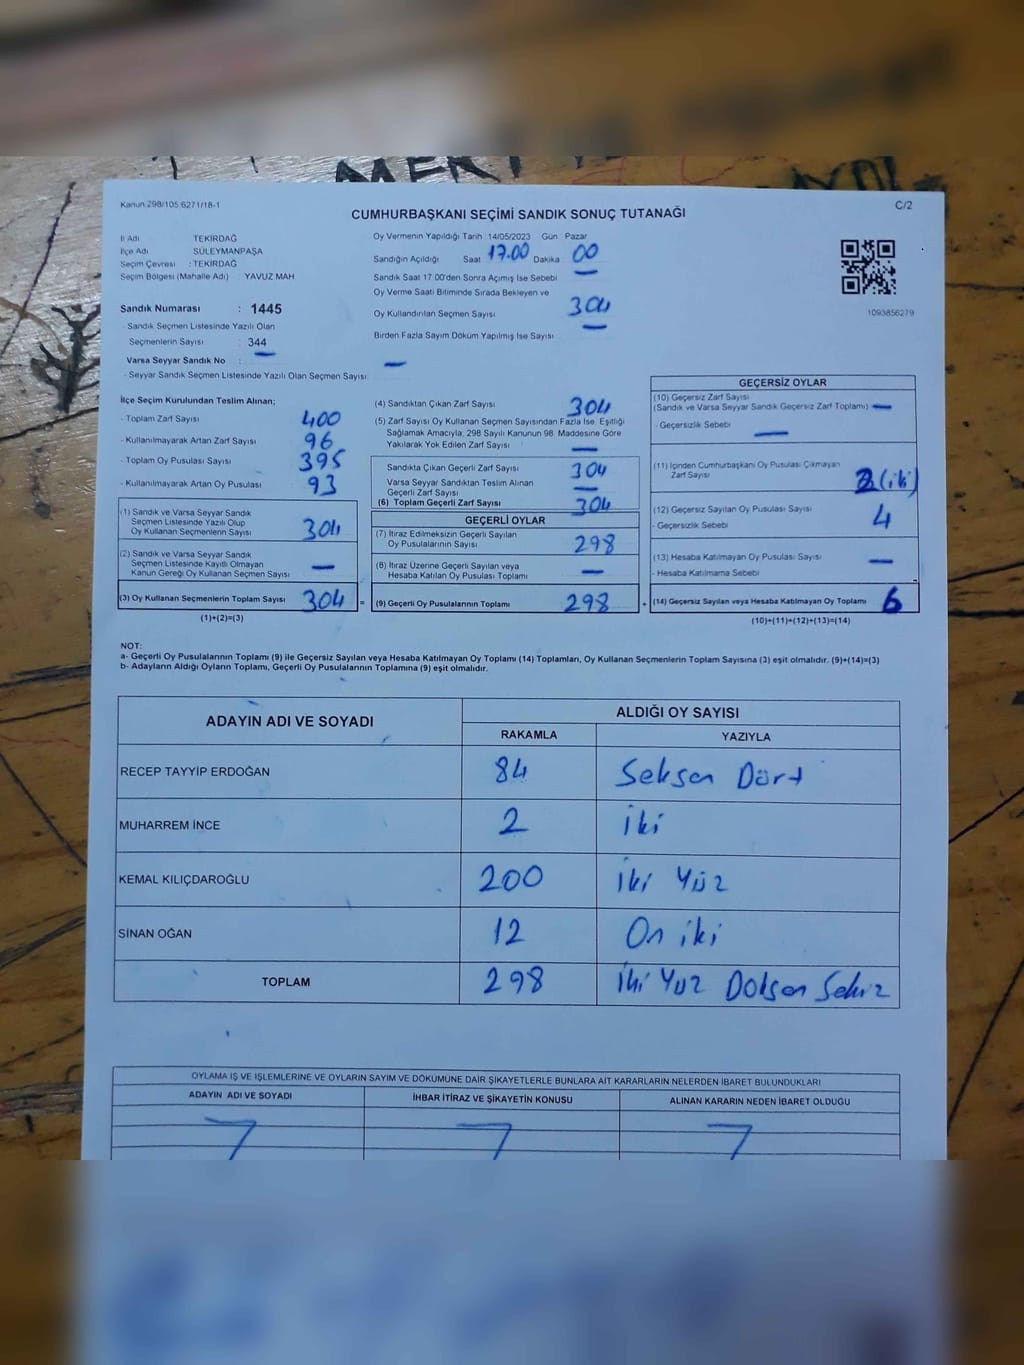 MERT
Kanun 298/105.6271/18-1
C/2
CUMHURBAŞKANI SEÇİMİ SANDIK SONUÇ TUTANAĞI
İl Adı TEKİRDAĞ
İlçe Adı SÜLEYMANPAŞA
Seçim Çevresi : TEKİRDAĞ
Seçim Bölgesi (Mahalle Adı) YAVUZ MAH
Sandık Numarası : 1445
- Sandık Seçmen Listesinde Yazılı Olan
Seçmenlerin Sayısı : 344
Varsa Seyyar Sandık No : —
- Seyyar Sandık Seçmen Listesinde Yazılı Olan Seçmen Sayısı: —
Oy Vermenin Yapıldığı Tarih 14/05/2023 Gün Pazar
Sandığın Açıldığı Saat 17.00 Dakika 00
Sandık Saat 17:00'den Sonra Açılmış İse Sebebi —
Oy Verme Saati Bitiminde Sırada Bekleyen ve
Oy Kullandırılan Seçmen Sayısı 304
Birden Fazla Sayım Döküm Yapılmış İse Sayısı —
1093856279
İlçe Seçim Kurulundan Teslim Alınan;
- Toplam Zarf Sayısı 400
- Kullanılmayarak Artan Zarf Sayısı 96
- Toplam Oy Pusulası Sayısı 395
- Kullanılmayarak Artan Oy Pusulası 93
(1) Sandık ve Varsa Seyyar Sandık
Seçmen Listesinde Yazılı Olup
Oy Kullanan Seçmenlerin Sayısı 304
(2) Sandık ve Varsa Seyyar Sandık
Seçmen Listesinde Kayıtlı Olmayan
Kanun Gereği Oy Kullanan Seçmen Sayısı —
(3) Oy Kullanan Seçmenlerin Toplam Sayısı 304 =
(1)+(2)=(3)
(4) Sandıktan Çıkan Zarf Sayısı 304
(5) Zarf Sayısı Oy Kullanan Seçmen Sayısından Fazla İse, Eşitliği
Sağlamak Amacıyla, 298 Sayılı Kanunun 98. Maddesine Göre
Yakılarak Yok Edilen Zarf Sayısı —
Sandıkta Çıkan Geçerli Zarf Sayısı 304
Varsa Seyyar Sandıktan Teslim Alınan
Geçerli Zarf Sayısı —
(6) Toplam Geçerli Zarf Sayısı 304
GEÇERLİ OYLAR
(7) İtiraz Edilmeksizin Geçerli Sayılan
Oy Pusulalarının Sayısı 298
(8) İtiraz Üzerine Geçerli Sayılan veya
Hesaba Katılan Oy Pusulası Toplamı —
(9) Geçerli Oy Pusulalarının Toplamı 298 +
GEÇERSİZ OYLAR
(10) Geçersiz Zarf Sayısı
(Sandık ve Varsa Seyyar Sandık Geçersiz Zarf Toplamı) —
- Geçersizlik Sebebi —
(11) İçinden Cumhurbaşkanı Oy Pusulası Çıkmayan
Zarf Sayısı 2 (iki)
(12) Geçersiz Sayılan Oy Pusulası Sayısı 4
- Geçersizlik Sebebi
(13) Hesaba Katılmayan Oy Pusulası Sayısı —
- Hesaba Katılmama Sebebi
(14) Geçersiz Sayılan veya Hesaba Katılmayan Oy Toplamı 6
(10)+(11)+(12)+(13)=(14)
NOT:
a- Geçerli Oy Pusulalarının Toplamı (9) ile Geçersiz Sayılan veya Hesaba Katılmayan Oy Toplamı (14) Toplamları, Oy Kullanan Seçmenlerin Toplam Sayısına (3) eşit olmalıdır. (9)+(14)=(3)
b- Adayların Aldığı Oyların Toplamı, Geçerli Oy Pusulalarının Toplamına (9) eşit olmalıdır.
ADAYIN ADI VE SOYADI
ALDIĞI OY SAYISI
RAKAMLA YAZIYLA
RECEP TAYYİP ERDOĞAN 84 Seksen Dört
MUHARREM İNCE 2 İki
KEMAL KILIÇDAROĞLU 200 İki Yüz
SİNAN OĞAN 12 On iki
TOPLAM 298 İki Yüz Doksan Sekiz
OYLAMA İŞ VE İŞLEMLERİNE VE OYLARIN SAYIM VE DÖKÜMÜNE DAİR ŞİKAYETLERLE BUNLARA AİT KARARLARIN NELERDEN İBARET BULUNDUKLARI
ADAYIN ADI VE SOYADI İHBAR İTİRAZ VE ŞİKAYETİN KONUSU ALINAN KARARIN NEDEN İBARET OLDUĞU